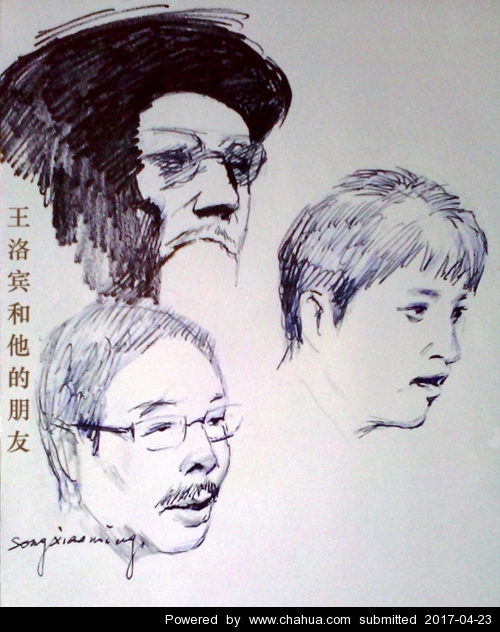 王洛宾和他的朋友
songxiaoming.
Powered by www.chahua.com submitted 2017-04-23